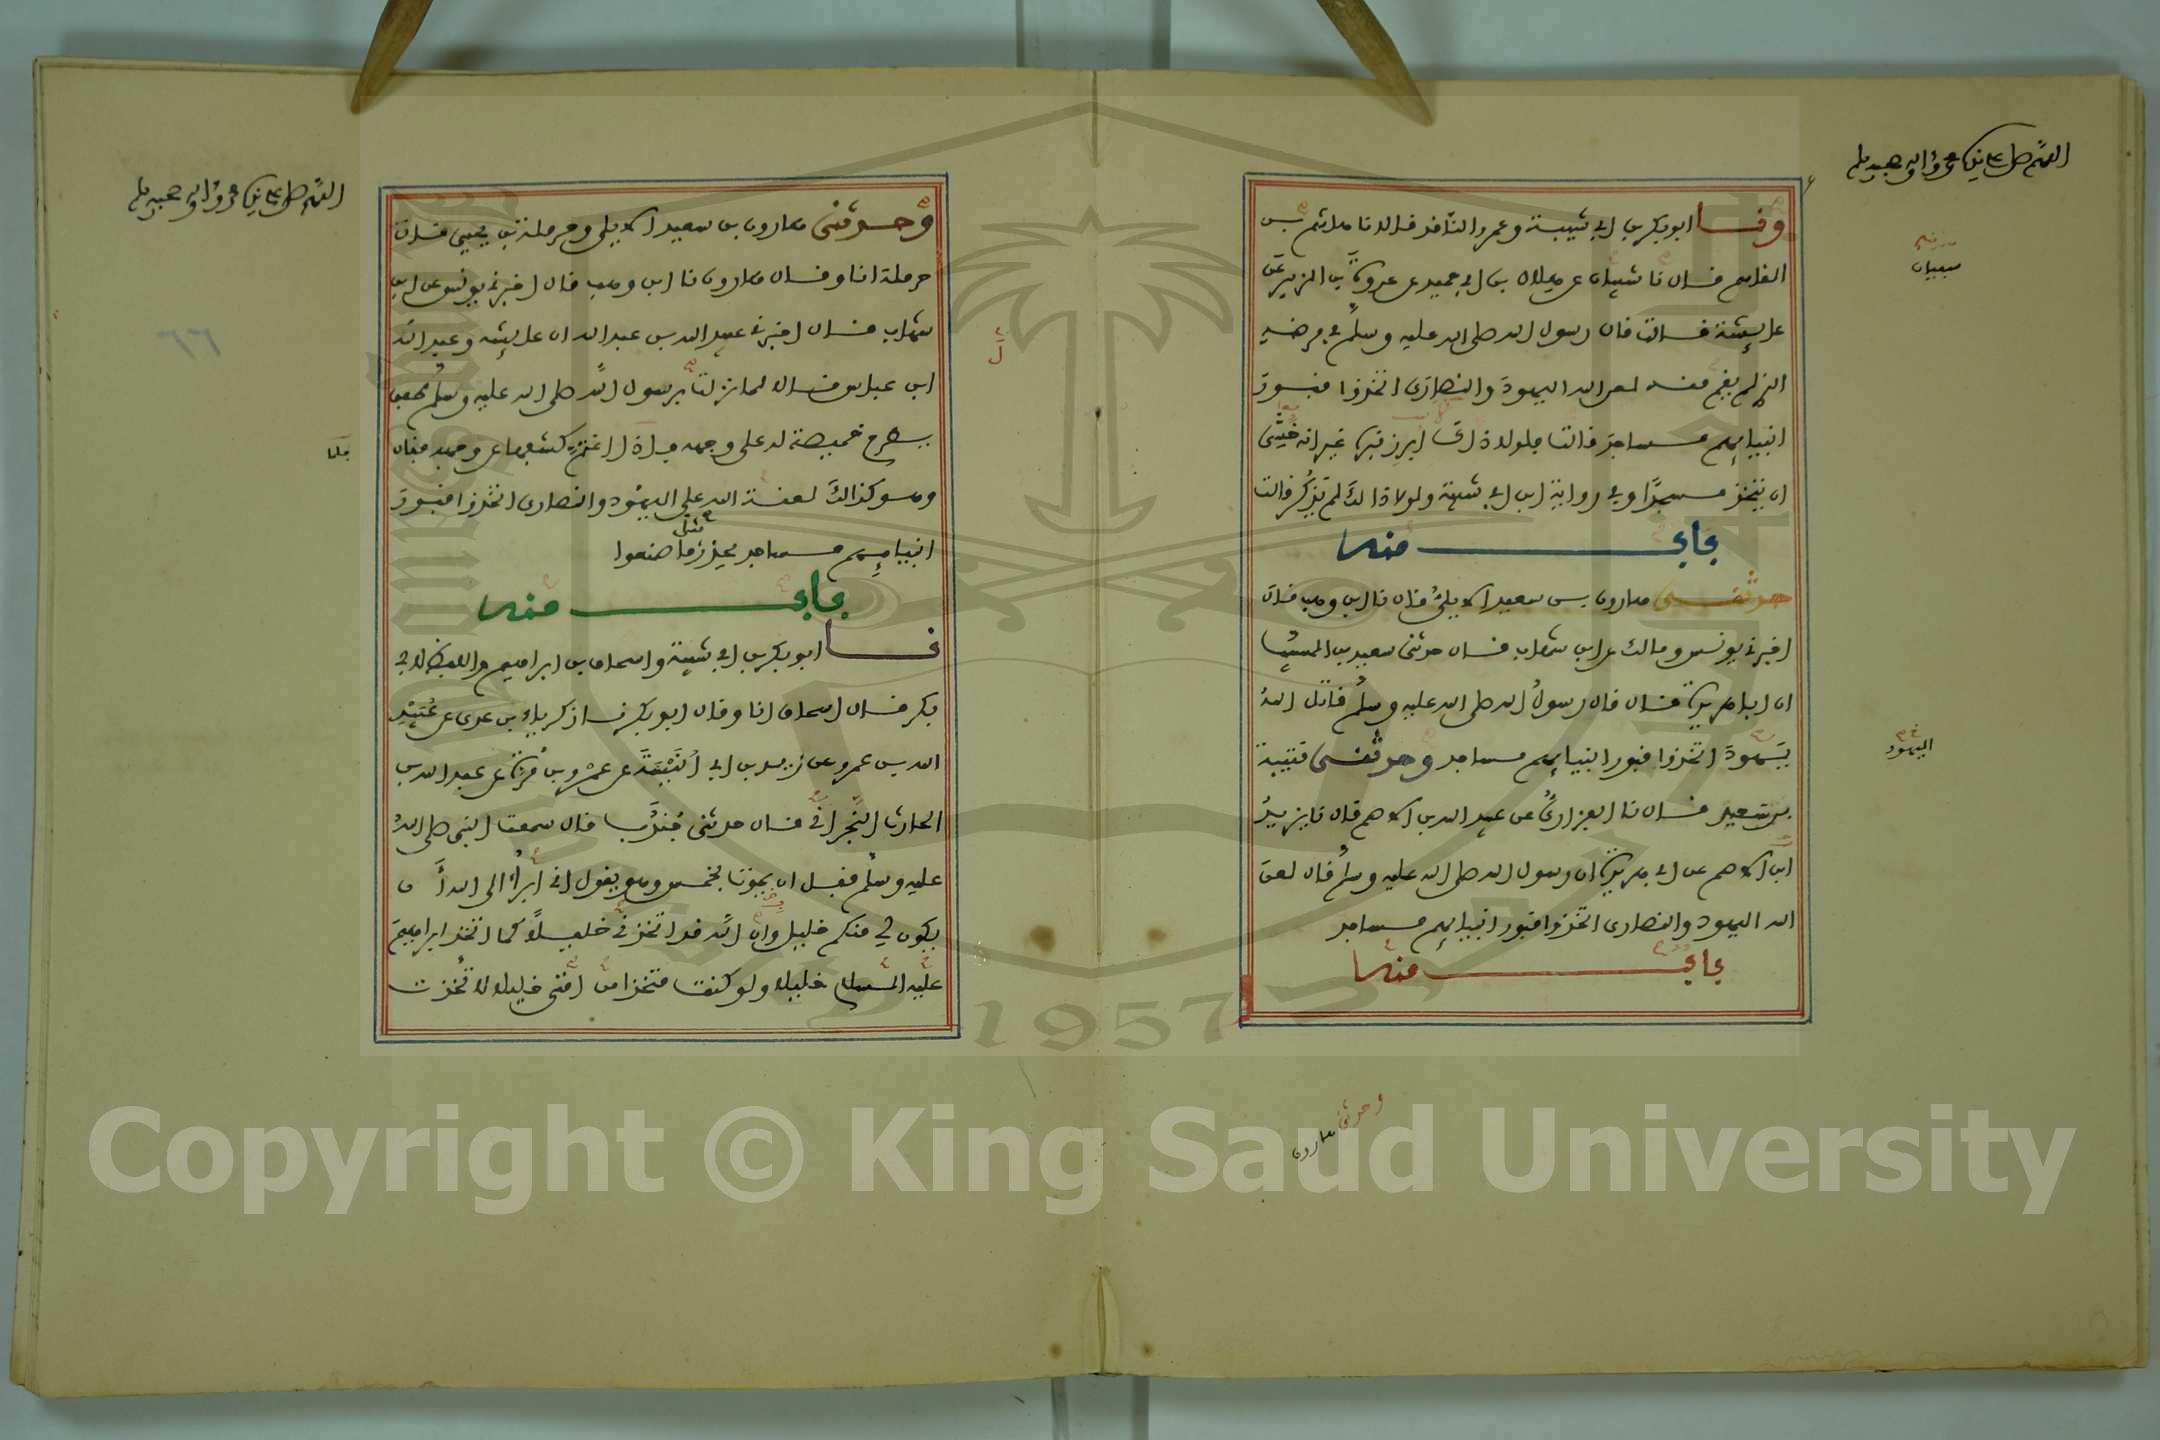 اللهم صل على نبيك محمد وآله وصحبه وسلم
ونا ابو بكر بن ابي شيبة وعمرو الناقد قالا نا هاشم بن
القاسم قال نا شيبان عن هلال بن ابي حميد عن عروة بن الزبير عن
عايشة قالت قال رسول الله صلى الله عليه وسلم في مرضه
الذي لم يقم منه لعن الله اليهود والنصارى اتخذوا قبور
انبيايهم مساجد قالت فلولا ذاك ابرز قبره غير انه خشي
ان يتخذ مسجدا وفي رواية ابن ابي شيبة ولولا ذاك لم يذكر قالت
باب منه
حدثني هارون بن سعيد الايلي قال نا ابن وهب قال
اخبرني يونس ومالك عن ابن شهاب قال حدثني سعيد بن المسيب
ان ابا هريرة قال قال رسول الله صلى الله عليه وسلم قاتل الله
يهود اتخذوا قبور انبيايهم مساجد وحدثني قتيبة
بن سعيد قال نا الفزاري عن عبد الله بن الاصم قال نا يزيد
ابن الاصم عن ابي هريرة ان رسول الله صلى الله عليه وسلم قال لعن
الله اليهود والنصارى اتخذوا قبور انبيايهم مساجد
باب منه
سفيان
اليهود
وحدثني هارون
اللهم صل على نبيك محمد وآله وصحبه وسلم
وحدثني هارون بن سعيد الايلي وحرملة بن يحيى قال
حرملة انا وقال هارون نا ابن وهب قال اخبرني يونس عن ابن
شهاب قال اخبرني عبيد الله بن عبد الله ان عايشة وعبد الله
ابن عباس قالا لما نزلت برسول الله صلى الله عليه وسلم طفق
يطرح خميصة له على وجهه فاذا اغتم كشفها عن وجهه فقال
وهو كذالك لعنة الله على اليهود والنصارى اتخذوا قبور
انبيايهم مساجد يحذر مثل ما صنعوا
باب منه
نا ابو بكر بن ابي شيبة واسحاق بن ابراهيم واللفظ لابي
بكر قال اسحاق انا وقال ابو بكر نا زكرياء بن عدي عن عبيد
الله بن عمرو عن زيد بن ابي انيسة عن عمرو بن مرة عن عبد الله بن
الحارث النجراني قال حدثني جندب قال سمعت النبي صلى الله
عليه وسلم قبل ان يموت بخمس وهو يقول اني ابرأ الى الله أن
يكون لي منكم خليل وان الله قد اتخذني خليلا كما اتخذ ابراهيم
عليه السلام خليلا ولو كنت متخذا من امتي خليلا لاتخذت
٦٦
Copyright © King Saud University
1957